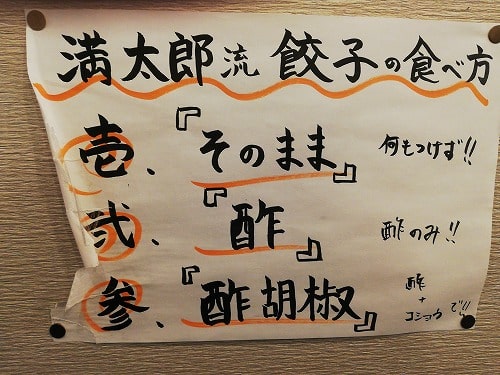 満太郎流 餃子の食べ方
壱、『そのまま』 何もつけず!!
弐、『酢』 酢のみ!!
参、『酢胡椒』 酢+コショウで!!